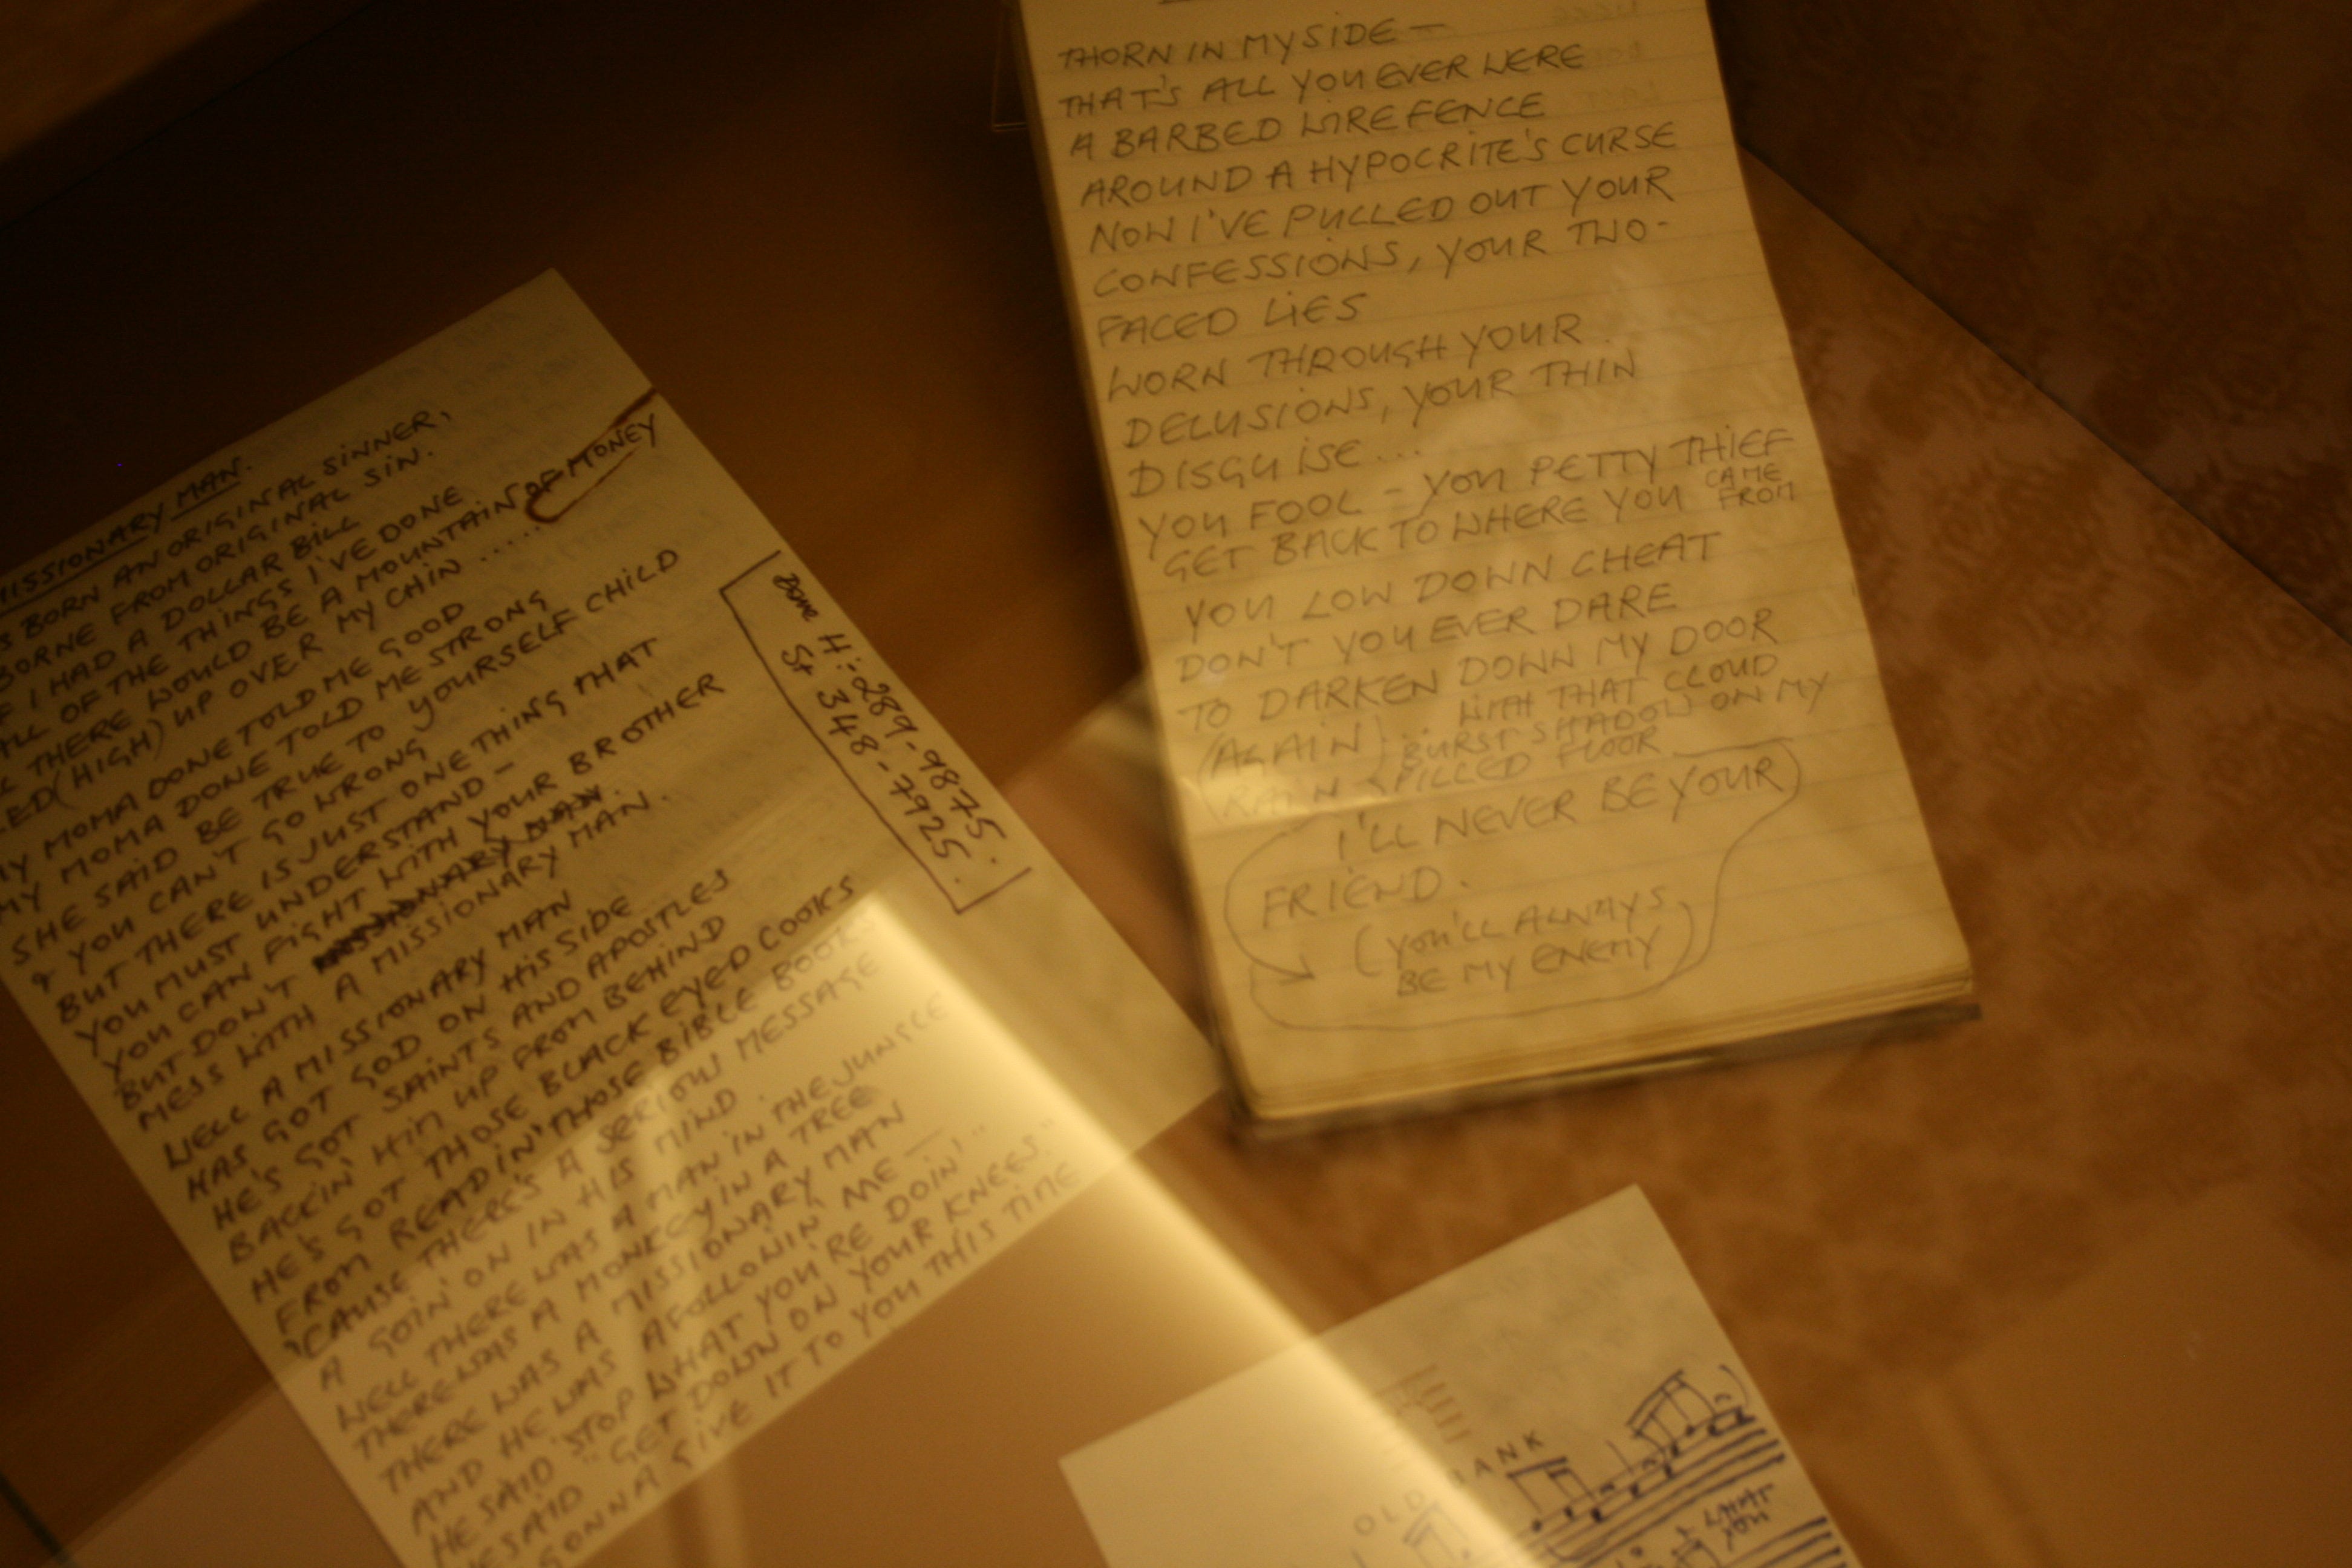 MISSIONARY MAN.
BORN AN ORIGINAL SINNER,
BORNE FROM ORIGINAL SIN.
IF I HAD A DOLLAR BILL
ALL OF THE THINGS I'VE DONE
THERE WOULD BE A MOUNTAIN OF MONEY
(HIGH) UP OVER MY CHIN .....
MY MOMA DONE TOLD ME GOOD
MY MOMA DONE TOLD ME STRONG
SHE SAID BE TRUE TO YOURSELF CHILD
& YOU CAN'T GO WRONG
BUT THERE IS JUST ONE THING THAT
YOU MUST UNDERSTAND -
YOU CAN FIGHT WITH YOUR BROTHER
BUT DON'T MISSIONARY MAN.
MESS WITH A MISSIONARY MAN.
WELL A MISSIONARY MAN
HAS GOT GOD ON HIS SIDE
HE'S GOT SAINTS AND APOSTLES
BACKIN' HIM UP FROM BEHIND
HE'S GOT THOSE BLACK EYED LOOKS
FROM READIN' THOSE BIBLE BOOKS
'CAUSE THERE'S A SERIOUS MESSAGE
A GOIN' ON IN HIS MIND.
WELL THERE WAS A MAN IN THE JUNGLE
THERE WAS A MONKEY IN A TREE
THERE WAS A MISSIONARY MAN
AND HE WAS A FOLLOWIN' ME —
HE SAID "STOP WHAT YOU'RE DOIN'"
HE SAID "GET DOWN ON YOUR KNEES."
GONNA GIVE IT TO YOU THIS TIME
H:- 289-9875.
St 348-7925.
THORN IN MY SIDE —
THAT'S ALL YOU EVER WERE
A BARBED WIRE FENCE
AROUND A HYPOCRITE'S CURSE
NOW I'VE PULLED OUT YOUR
CONFESSIONS, YOUR TWO-
FACED LIES
WORN THROUGH YOUR
DELUSIONS, YOUR THIN
DISGUISE...
YOU FOOL - YOU PETTY THIEF
GET BACK TO WHERE YOU CAME FROM
YOU LOW DOWN CHEAT
DON'T YOU EVER DARE
TO DARKEN DOWN MY DOOR
(AGAIN)... WITH THAT CLOUD
BURST SHADOW ON MY
RAIN SPILLED FLOOR
I'LL NEVER BE YOUR
FRIEND.
(YOU'LL ALWAYS
BE MY ENEMY)
OLD